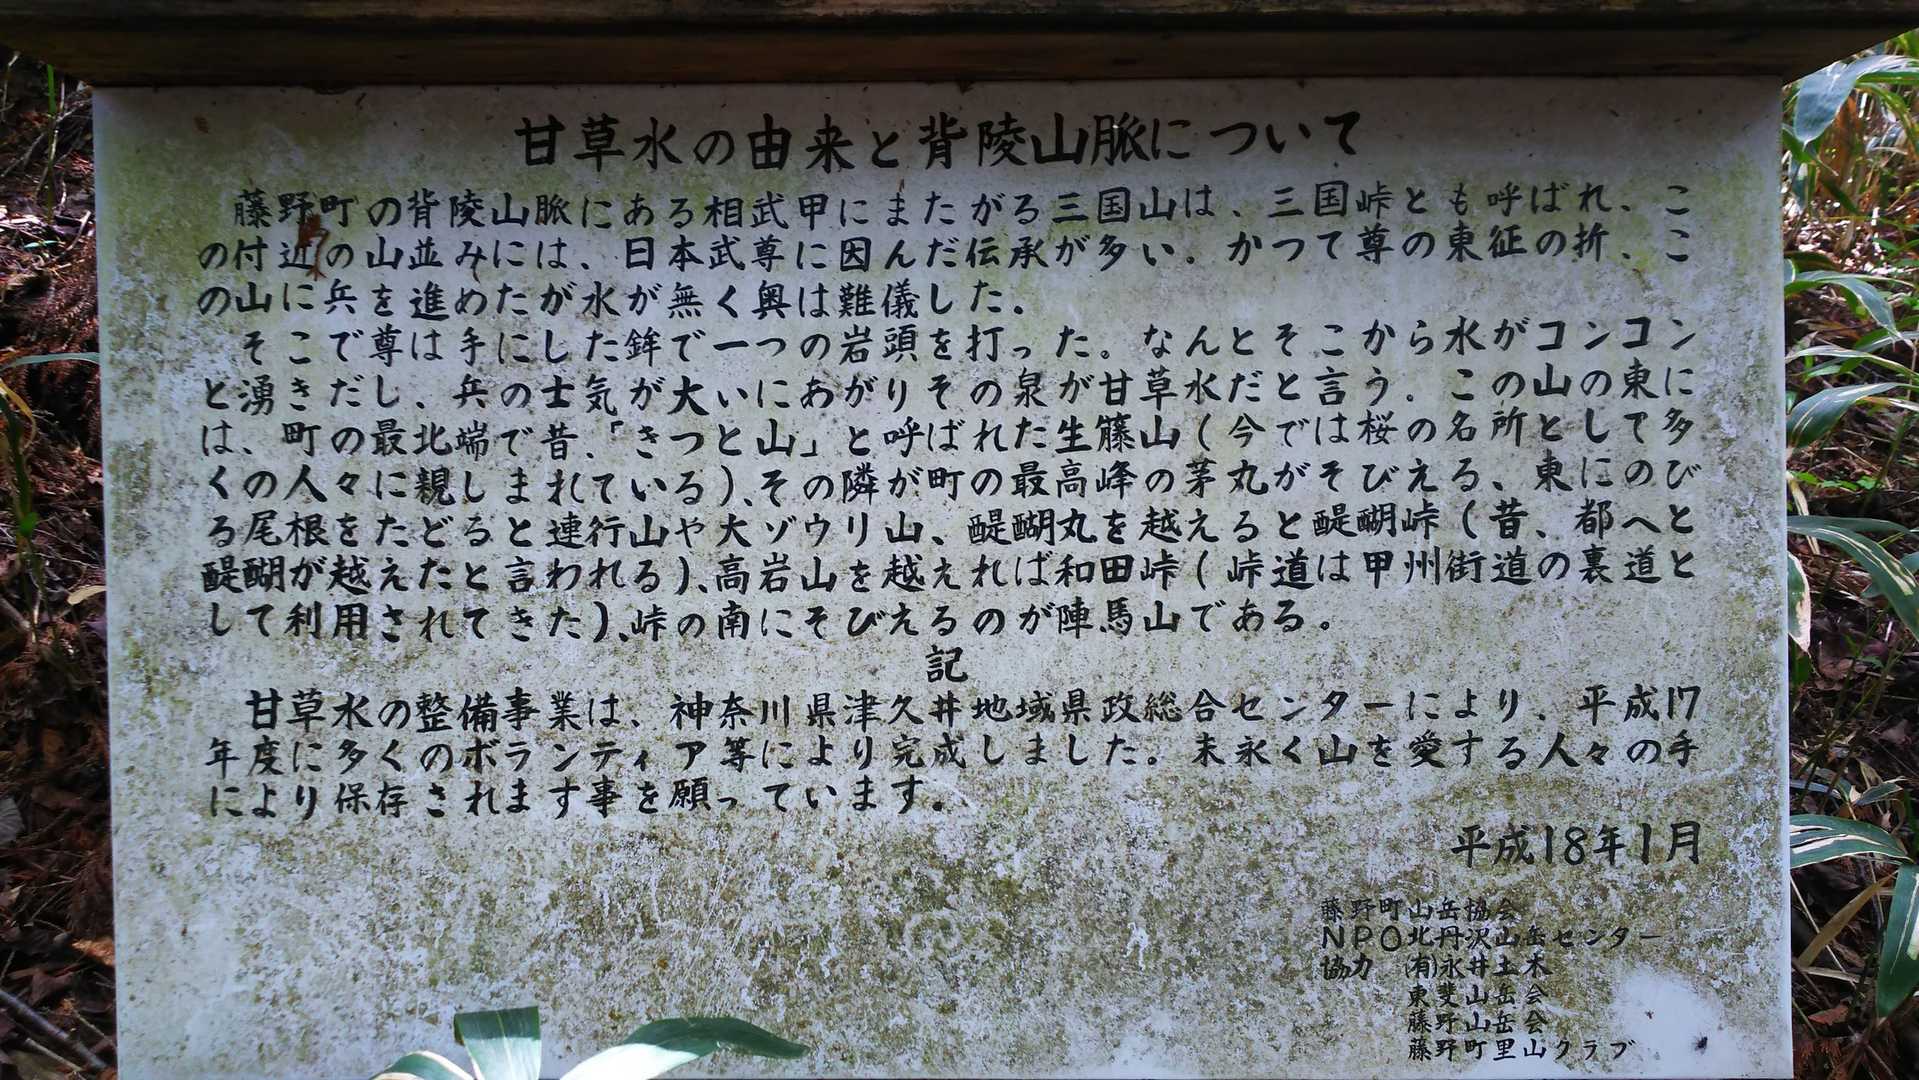 甘草水の由来と背陵山脈について
藤野町の背陵山脈にある相武甲にまたがる三国山は、三国峠とも呼ばれ、こ
の付近の山並みには、日本武尊に因んだ伝承が多い。かつて尊の東征の折、こ
の山に兵を進めたが水が無く奥は難儀した。
そこで尊は手にした鉾で一つの岩頭を打った。なんとそこから水がコンコン
と湧きだし、兵の士気が大いにあがりその泉が甘草水だと言う。この山の東に
は、町の最北端で昔、「きつと山」と呼ばれた生籐山(今では桜の名所として多
くの人々に親しまれている)、その隣が町の最高峰の茅丸がそびえる、東にのび
る尾根をたどると連行山や大ゾウリ山、醍醐丸を越えると醍醐峠(昔、都へと
醍醐が越えたと言われる)、高岩山を越えれば和田峠(峠道は甲州街道の裏道と
して利用されてきた)、峠の南にそびえるのが陣馬山である。
記
甘草水の整備事業は、神奈川県津久井地域県政総合センターにより、平成17
年度に多くのボランティア等により完成しました。末永く山を愛する人々の手
により保存されます事を願っています。
平成18年1月
藤野町山岳協会
NPO北丹沢山岳センター
協力 (有)永井土木
東斐山岳会
藤野山岳会
藤野町里山クラブ